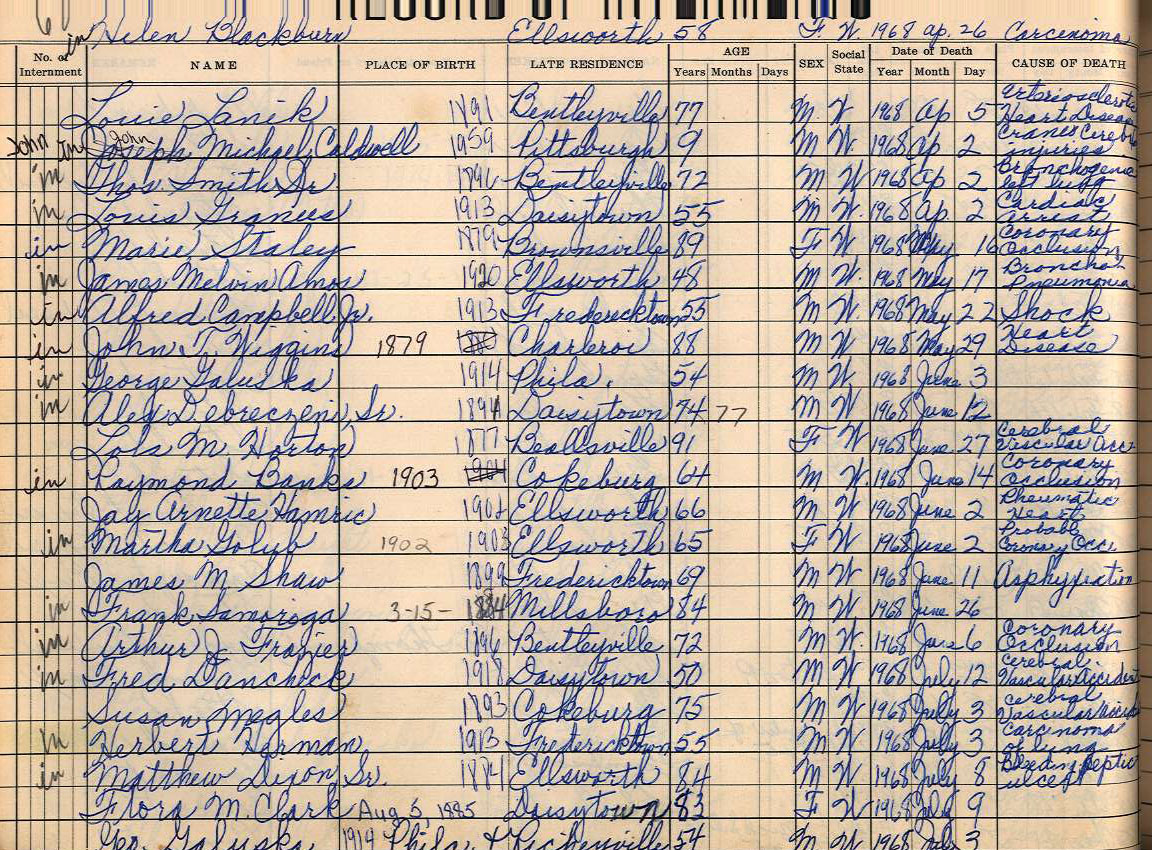 RECORD OF INTERMENTS
in Helen Blackburn Ellsworth 58 F. W. 1968 Ap. 26 Carcinoma
No. of Internment NAME PLACE OF BIRTH LATE RESIDENCE AGE Years Months Days SEX Social State Date of Death Year Month Day CAUSE OF DEATH
Louie Lanik 1891 Bentleyville 77 M. W. 1968 Ap 5 Arteriosclerotic Heart Disease
John in John Joseph Michael Caldwell 1959 Pittsburgh 9 M W. 1968 Ap 2 injuries
in Thos. Smith Sr. 1896 Bentleyville 72 M W 1968 Ap 2 Bronchogenic left lung
in Louis Grances 1913 Daisytown 55 M W. 1968 Ap. 2 Cardiac Arrest
in Marie Staley 1879 Brownsville 89 F W. 1968 May 16 Coronary Occlusion
in James Melvin Amos 1920 Ellsworth 48 M W. 1968 May 17 Broncho Pneumonia
in Alfred Campbell Jr. 1913 Fredericktown 55 M W. 1968 May 22 Shock
in John T. Wiggins 1879 Charleroi 88 M W. 1968 May 29 Heart Disease
in George Galuska 1914 Phila. 54 M W. 1968 June 3
in Alex Debreczeni, Sr. 1894 Daisytown 74 77 M W 1968 June 12
Lola M. Horton 1877 Beallsville 91 F W. 1968 June 27 Cerebral Vascular Acc.
in Raymond Banks 1903 1904 Cokeburg 64 M W. 1968 June 14 Coronary Occlusion
Jay Arnette Hamric 1902 Ellsworth 66 M W. 1968 June 2 Rheumatic Heart
in Martha Golub 1902 1903 Ellsworth 65 F W. 1968 June 2 Probable Coronary Occ.
James M. Shaw 1899 Fredericktown 69 M W. 1968 June 11 Asphyxiation
in Frank Samoriga 3-15- 1884 Millsboro 84 M W. 1968 June 26
in Arthur J. Frazier 1896 Bentleyville 72 M W. 1968 June 6 Coronary Occlusion
in Fred Danchick 1918 Daisytown 50 M W 1968 July 12 Cerebral Vascular Accident
Susan Megles 1893 Cokeburg 75 M W 1968 July 3 Cerebral Vascular Accident
in Herbert Horman 1913 Fredericktown 55 M W 1968 July 3 Carcinoma of lung
in Matthew Dixon Sr. 1884 Ellsworth 84 M W 1968 July 8 Bleeding Peptic ulcer
Flora M. Clark Aug 5, 1885 Daisytown 83 F W 1968 July 9
Geo. Galuska 1914 Phila. + Richeyville 54 M W 1968 3